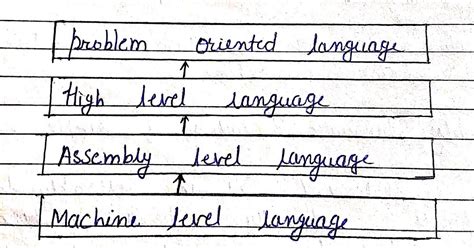 problem oriented language
High level language
Assembly level language
Machine level language